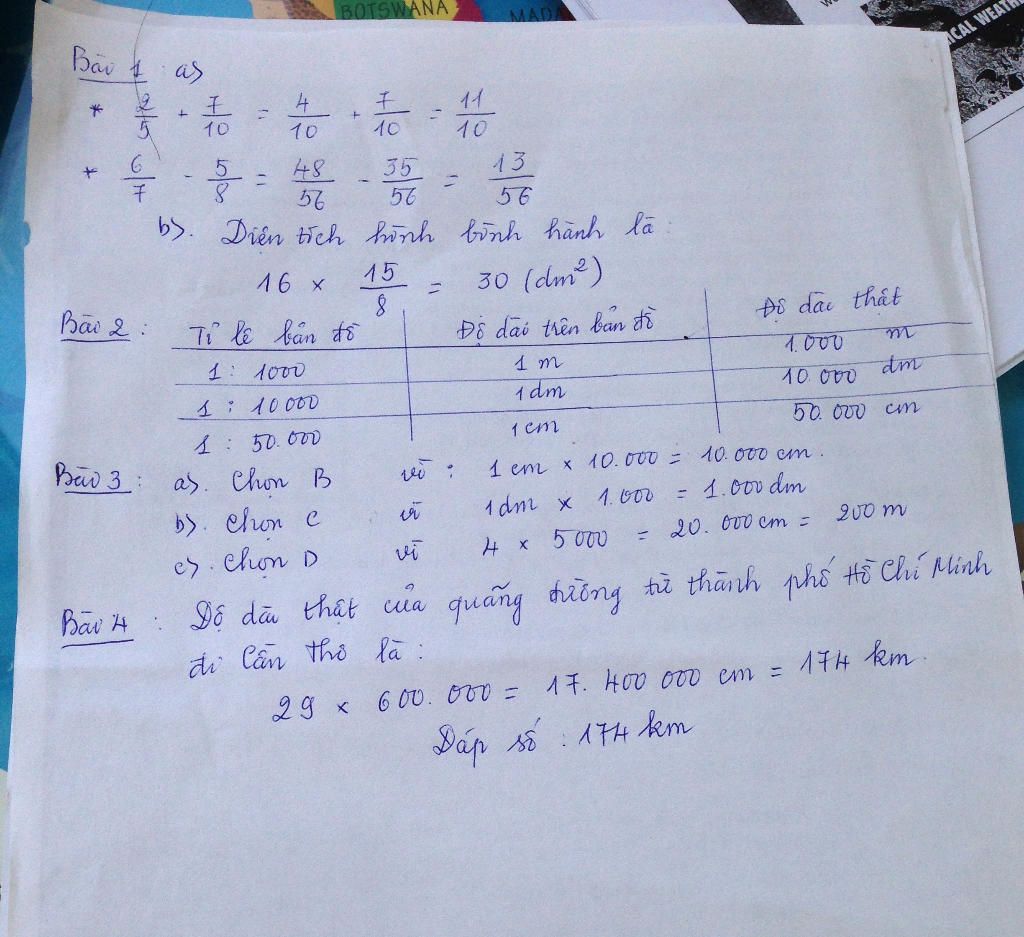 BOTSWANA
MADA
ICAL WEATH
Bài 1: a>
* 2/5 + 7/10 = 4/10 + 7/10 = 11/10
* 6/7 - 5/8 = 48/56 - 35/56 = 13/56
b>. Diện tích hình bình hành là:
16 × 15/8 = 30 (dm²)
Bài 2: Tỉ lệ bản đồ Độ dài trên bản đồ Độ dài thật
1 : 1000 1 m 1.000 m
1 : 10 000 1 dm 10.000 dm
1 : 50.000 1 cm 50.000 cm
Bài 3: a>. Chọn B vì: 1 cm × 10.000 = 10.000 cm.
b>. Chọn C vì 1dm × 1.000 = 1.000 dm
c>. Chọn D vì 4 × 5000 = 20.000 cm = 200 m
Bài 4: Độ dài thật của quãng đường từ thành phố Hồ Chí Minh
đi Cần Thơ là:
29 × 600.000 = 17.400 000 cm = 174 km.
Đáp số: 174 km